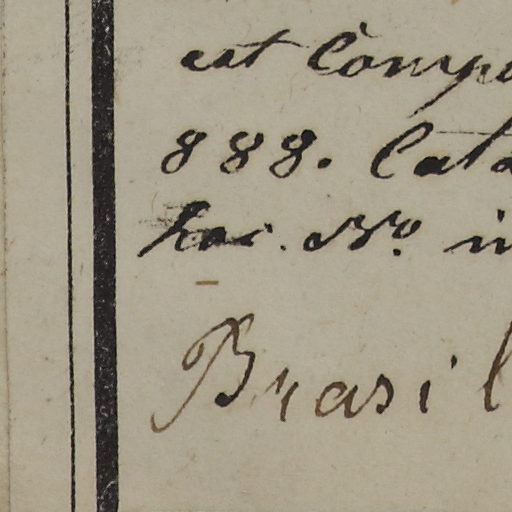 est Compo
888. Cata
hac. No. in
Brasil